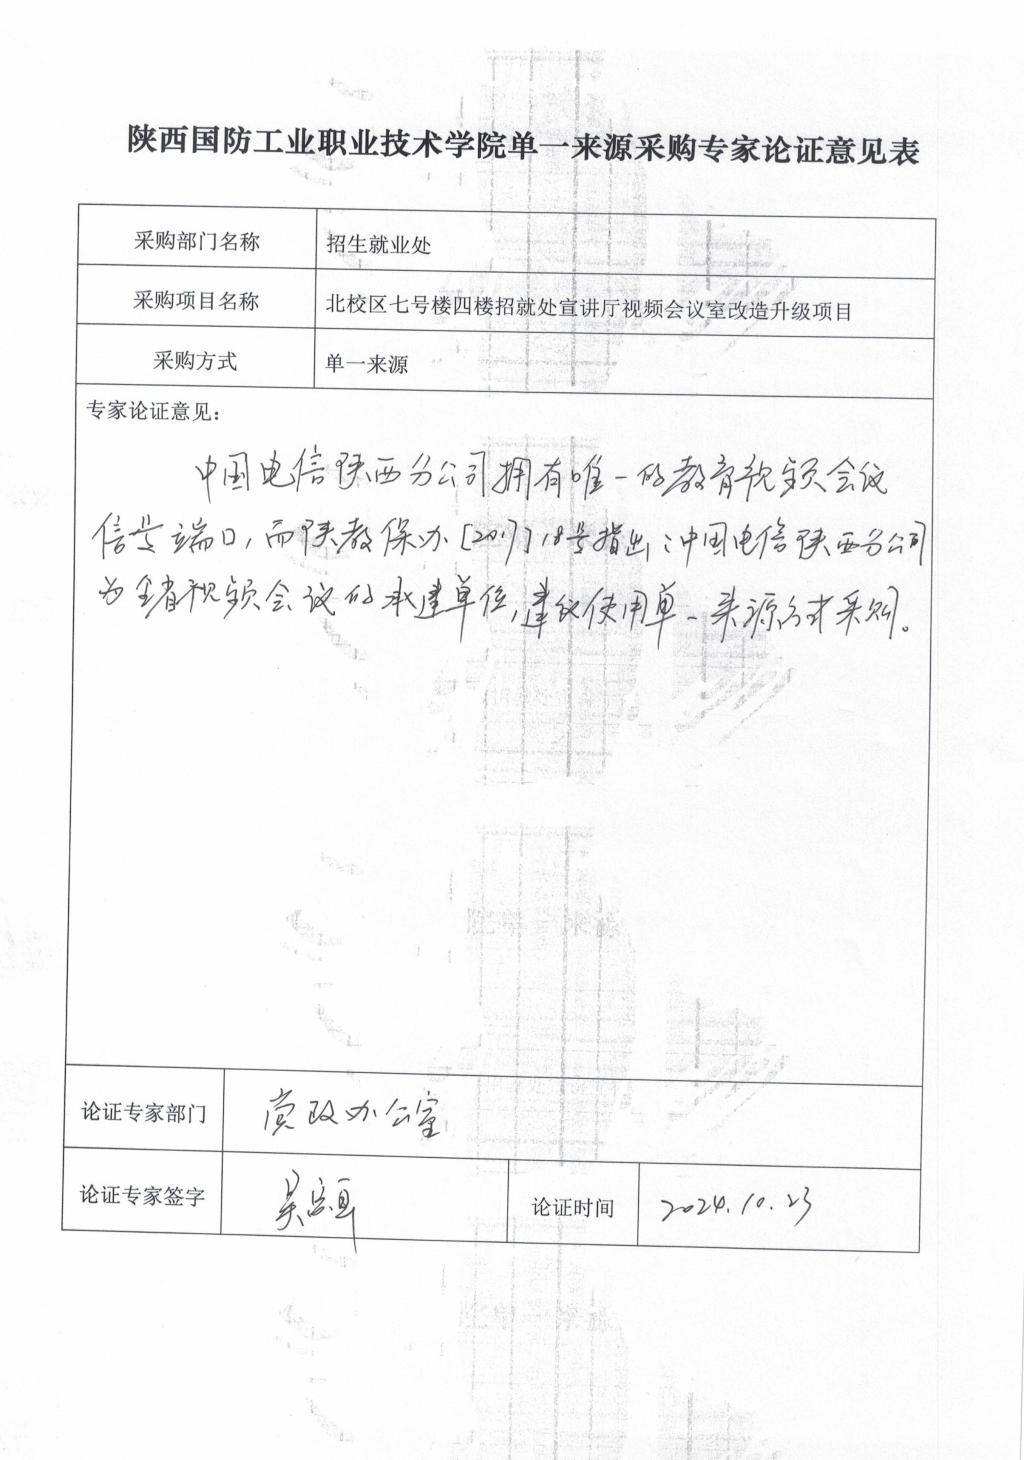 陕西国防工业职业技术学院单一来源采购专家论证意见表
采购部门名称 招生就业处
采购项目名称 北校区七号楼四楼招就处宣讲厅视频会议室改造升级项目
采购方式 单一来源
专家论证意见：
中国电信陕西分公司拥有唯一的教育视频会议
信号端口，而陕教保办[2017]18号指出：中国电信陕西分公司
为全省视频会议的承建单位，建议使用单一来源方式采购。
论证专家部门 党政办公室
论证专家签字 吴 论证时间 2024.10.23